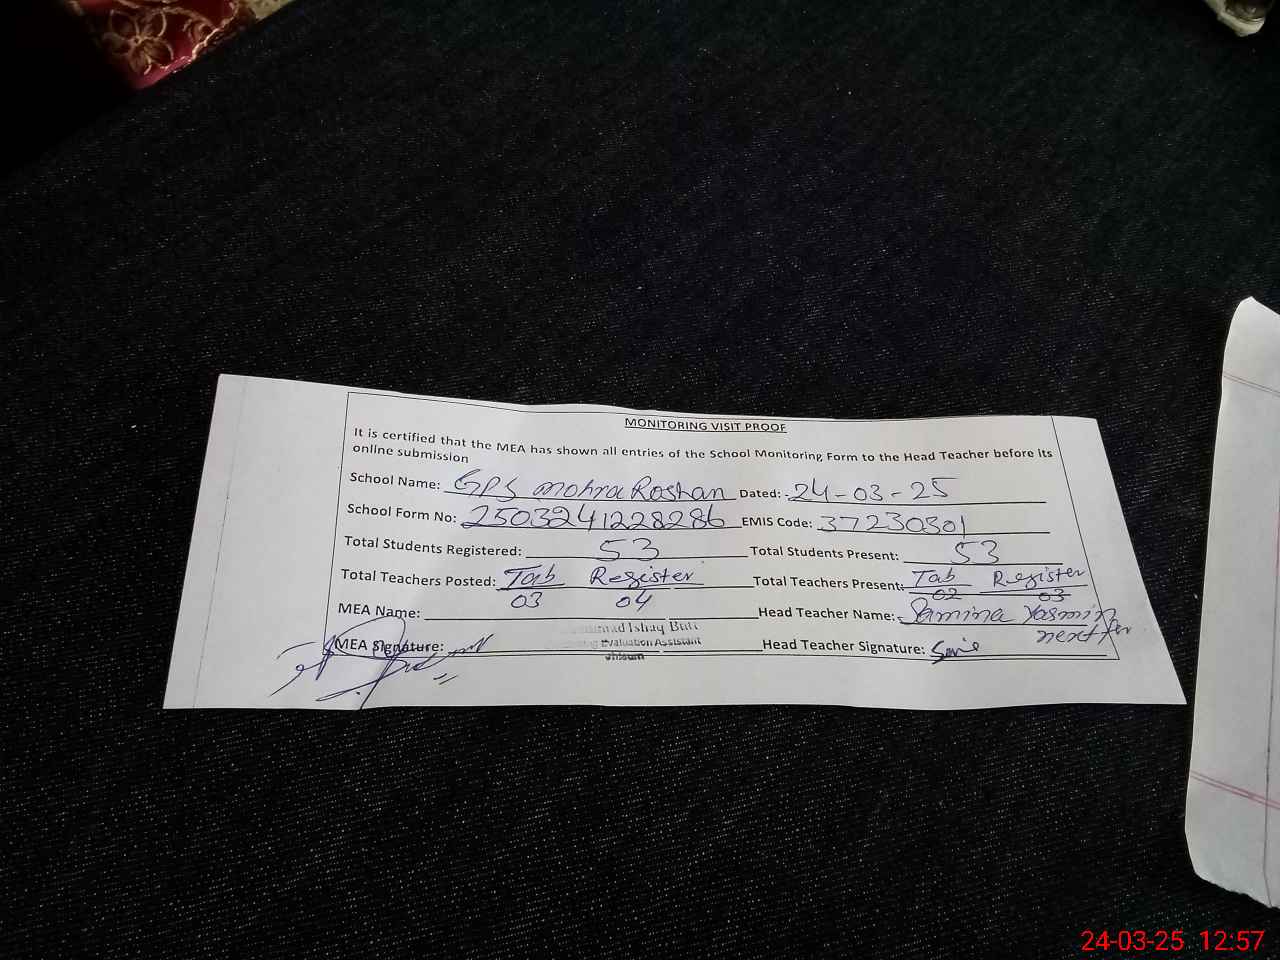 MONITORING VISIT PROOF
It is certified that the MEA has shown all entries of the School Monitoring Form to the Head Teacher before its
online submission
School Name: GPS Mohra Roshan Dated: 24-03-25
School Form No: 2503241228286 EMIS Code: 37230301
Total Students Registered: 53 Total Students Present: 53
Total Teachers Posted: Tab Register Total Teachers Present: Tab Register
03 04 02 03
MEA Name: Head Teacher Name: Samina Yasmin
Ishaq Butt
Evaluation Assistant
Jhelum
MEA Signature: Head Teacher Signature:
24-03-25 12:57